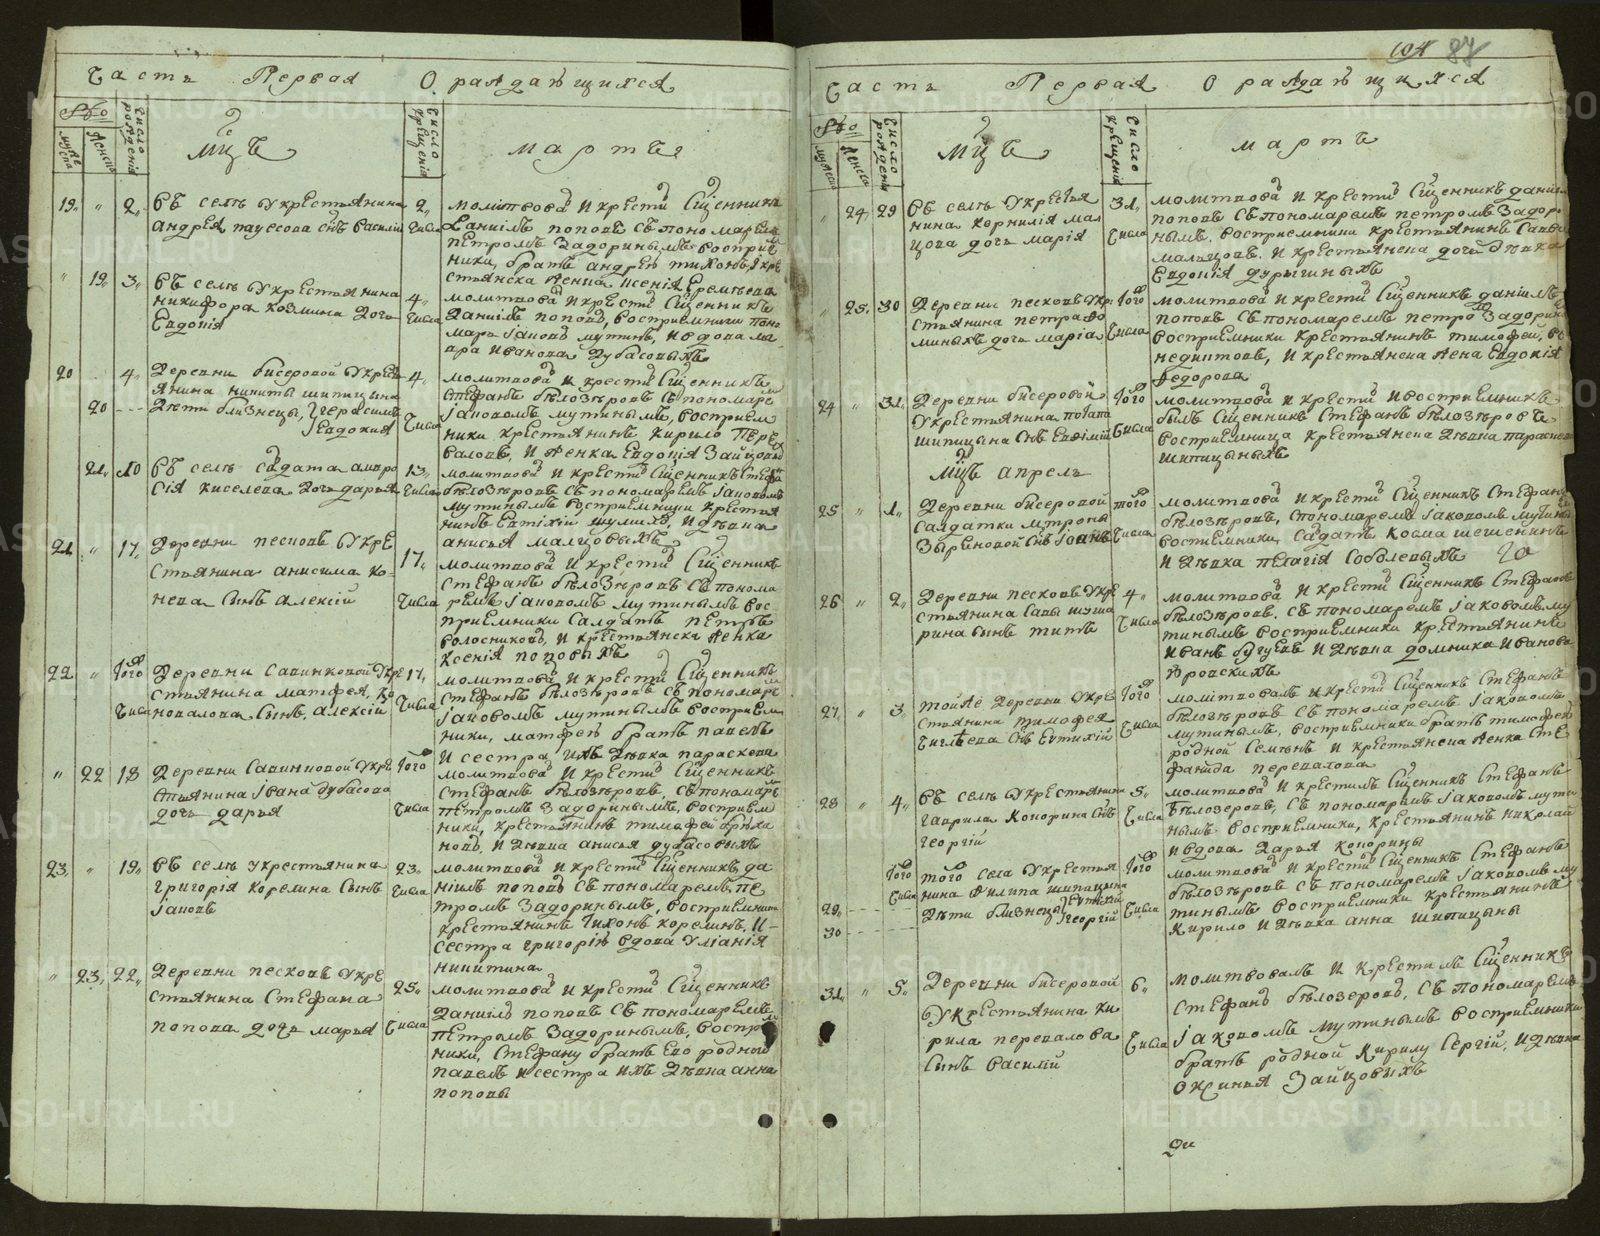 104 87
Часть Первая О раждающихся
Щетъ
мужеска
женска
число рожденія
Мцъ
число крещенія
мартъ
19, " 2,
въ селѣ у крестьянина
андрея паусова снъ василій
2, числа
молитвовал и крести Сщенникъ
Даніилъ поповъ съ пономаремъ
петромъ Задоринымъ восприем
ники, братъ андрея тихонъ, и кре
стьянска женка ксенія Еремѣева
" 19, 3,
въ селѣ у крестьянина
никифора козмина дочь
Евдокія
4, числа
молитвовал и крести Сщенникъ
Даніилъ поповъ, восприемники поно
марь іаковъ мутинъ, и вдова ма
вра иванова дубасовыхъ
20 4,
Деревни бисеровой у кресть
янина никиты шипицина
20
Дѣти близнецы, герасимъ,
Евдокия
4, числа
молитвовал и крести Сщенникъ
Стефанъ бѣлозѣровъ съ пономаре
іаковомъ мутинымъ, восприем
ники крестьянинъ кирило пере
валовъ, и женка Евдокія Зайцовы
21, 10
въ селѣ солдата амвро
сія киселева дочь дарья
13, числа
молитвовал и крести Сщенникъ Стефа
бѣлозѣровъ съ пономаремъ іаковомъ
мутинымъ восприемники крестья
нинъ Евтихій шулихъ, и дѣвка
анисья малцовыхъ
21 " 17,
Деревни песковъ у кре
стьянина анисима ко
нева сынъ алексій
17, числа
молитвовал и крести Сщенникъ
Стефанъ бѣлозѣровъ съ понома
ремъ іаковомъ мутинымъ вос
приемники салдатъ петръ
волосниковъ, и крестьянска женка
ксенія поповыхъ
22 " того числа
Деревни савинковой у кре
стьянина матфея, ко
новалова сынъ, алексій
17, числа
молитвовал и крести Сщенникъ
Стефанъ бѣлозѣровъ съ пономаре
іаковомъ мутинымъ восприем
ники, матфею братъ павелъ
и сестра ихъ дѣвка параскева
" 22 18
Деревни савинковой у кре
стьянина ивана дубасова
дочь дарья
того числа
молитвовал и крести Сщенникъ
Стефанъ бѣлозѣровъ, съ пономаре
петромъ Задоринымъ, восприем
ники, крестьянинъ тимофей брюха
новъ, и дѣвка анисья дубасовыхъ
23, " 19,
въ селѣ у крестьянина
григорія корелина сынъ
іаковъ
23, числа
молитвовал и крести Сщенникъ да
ніилъ поповъ съ пономаремъ, пе
тромъ Задоринымъ, восприемники
крестьянинъ тихонъ корелинъ, и
сестра григорію вдова улианія
никитина
" 23, 22,
Деревни песковъ у кре
стьянина Стефана
попова дочь марья
25, числа
молитвовал и крести Сщенникъ
Даниилъ поповъ съ пономаремъ
петромъ Задоринымъ, воспри
ники, Стефану братъ Его родный
павелъ и сестра ихъ дѣвка анна
поповы
Часть Первая О раждающихся
Щетъ
мужеска
женска
число рожденія
Мцъ
число крещенія
мартъ
" 24, 29
въ селѣ у крестья
нина корнилія мал
цова дочь марія
31, числа
молитвовал и крести Сщенникъ данил
поповъ съ пономаремъ петромъ Задор
нымъ. восприемники крестьянинъ савва
мальцовъ. и крестьянска дочь дѣвка
Евдокія дурыгиныхъ
" 25, 30
Деревни песковъ у кре
стьянина петра фо
миныхъ дочь марія
того числа
молитвовал и крести Сщенникъ даніилъ
поповъ съ пономаремъ петро Задорин
восприемники крестьянинъ тимофей,
и крестьянска жена Евдокія
федорова
24 " 31,
Деревни бисеровой
у крестьянина потапа
шипицына снъ Евдокимій
того числа
молитвовал и крести и восприемникъ
былъ Сщенникъ Стефанъ бѣлозѣровъ
восприемница крестьянска дѣвка параскева
шипицыныхъ
Мцъ апрель
25 " 1,
Деревни бисеровой
салдатки матроны
Зыряновой снъ іоанъ
того числа
молитвовал и крести Сщенникъ Стефанъ
бѣлозѣровъ, спономаремъ іаковомъ мутины
восприемники садатъ козма шешенинъ
и дѣвка пелагія Соболевыхъ
26 " 2,
Деревни песковъ у кре
стьянина савы шуша
рина сынъ титъ
4, числа
молитвовал и крести Сщенникъ Стефанъ
бѣлозѣровъ. съ пономаремъ іаковомъ му
тинымъ восприемники крестьянинъ
иванъ бугуевъ и дѣвка домника иванова
27, " 3,
той же Деревни у кре
стьянина тимофея
снъ Евтихій
того числа
молитвовалъ и крести Сщенникъ Стефанъ
бѣлозѣровъ съ пономаремъ іаковомъ
мутинымъ, восприемники братъ тимофею
родной Семенъ и крестьянска женка Сте
фанида перевалова
28 " 4,
въ селѣ у крестьянина
гаврила Копорина снъ
георгій
5, числа
молитвовал и крестилъ Сщенникъ Стефанъ
бѣлозеровъ, съ пономаремъ іаковомъ мути
нымъ восприемники, крестьянинъ николай
и вдова дарья копорины
того числа
того села у крестья
нина Филипа шипицына
29,
30
Дѣти близнецы Евтихій
георгій
того числа
молитвовал и крести Сщенникъ Стефанъ
бѣлозѣровъ съ пономаремъ іаковомъ му
тинымъ восприемники крестьянинъ
Кирило и дѣвка анна шипицыны
31, " 5,
Деревни бисеровой
у крестьянина ки
рила перевалова
сынъ василій
6, числа
молитвовалъ и крестилъ Сщенникъ
Стефанъ бѣлозеровъ, съ пономаремъ
іаковомъ мутинымъ восприемники
братъ родной Кирилу Сергій, и дѣвка
оксинья Зайцовыхъ